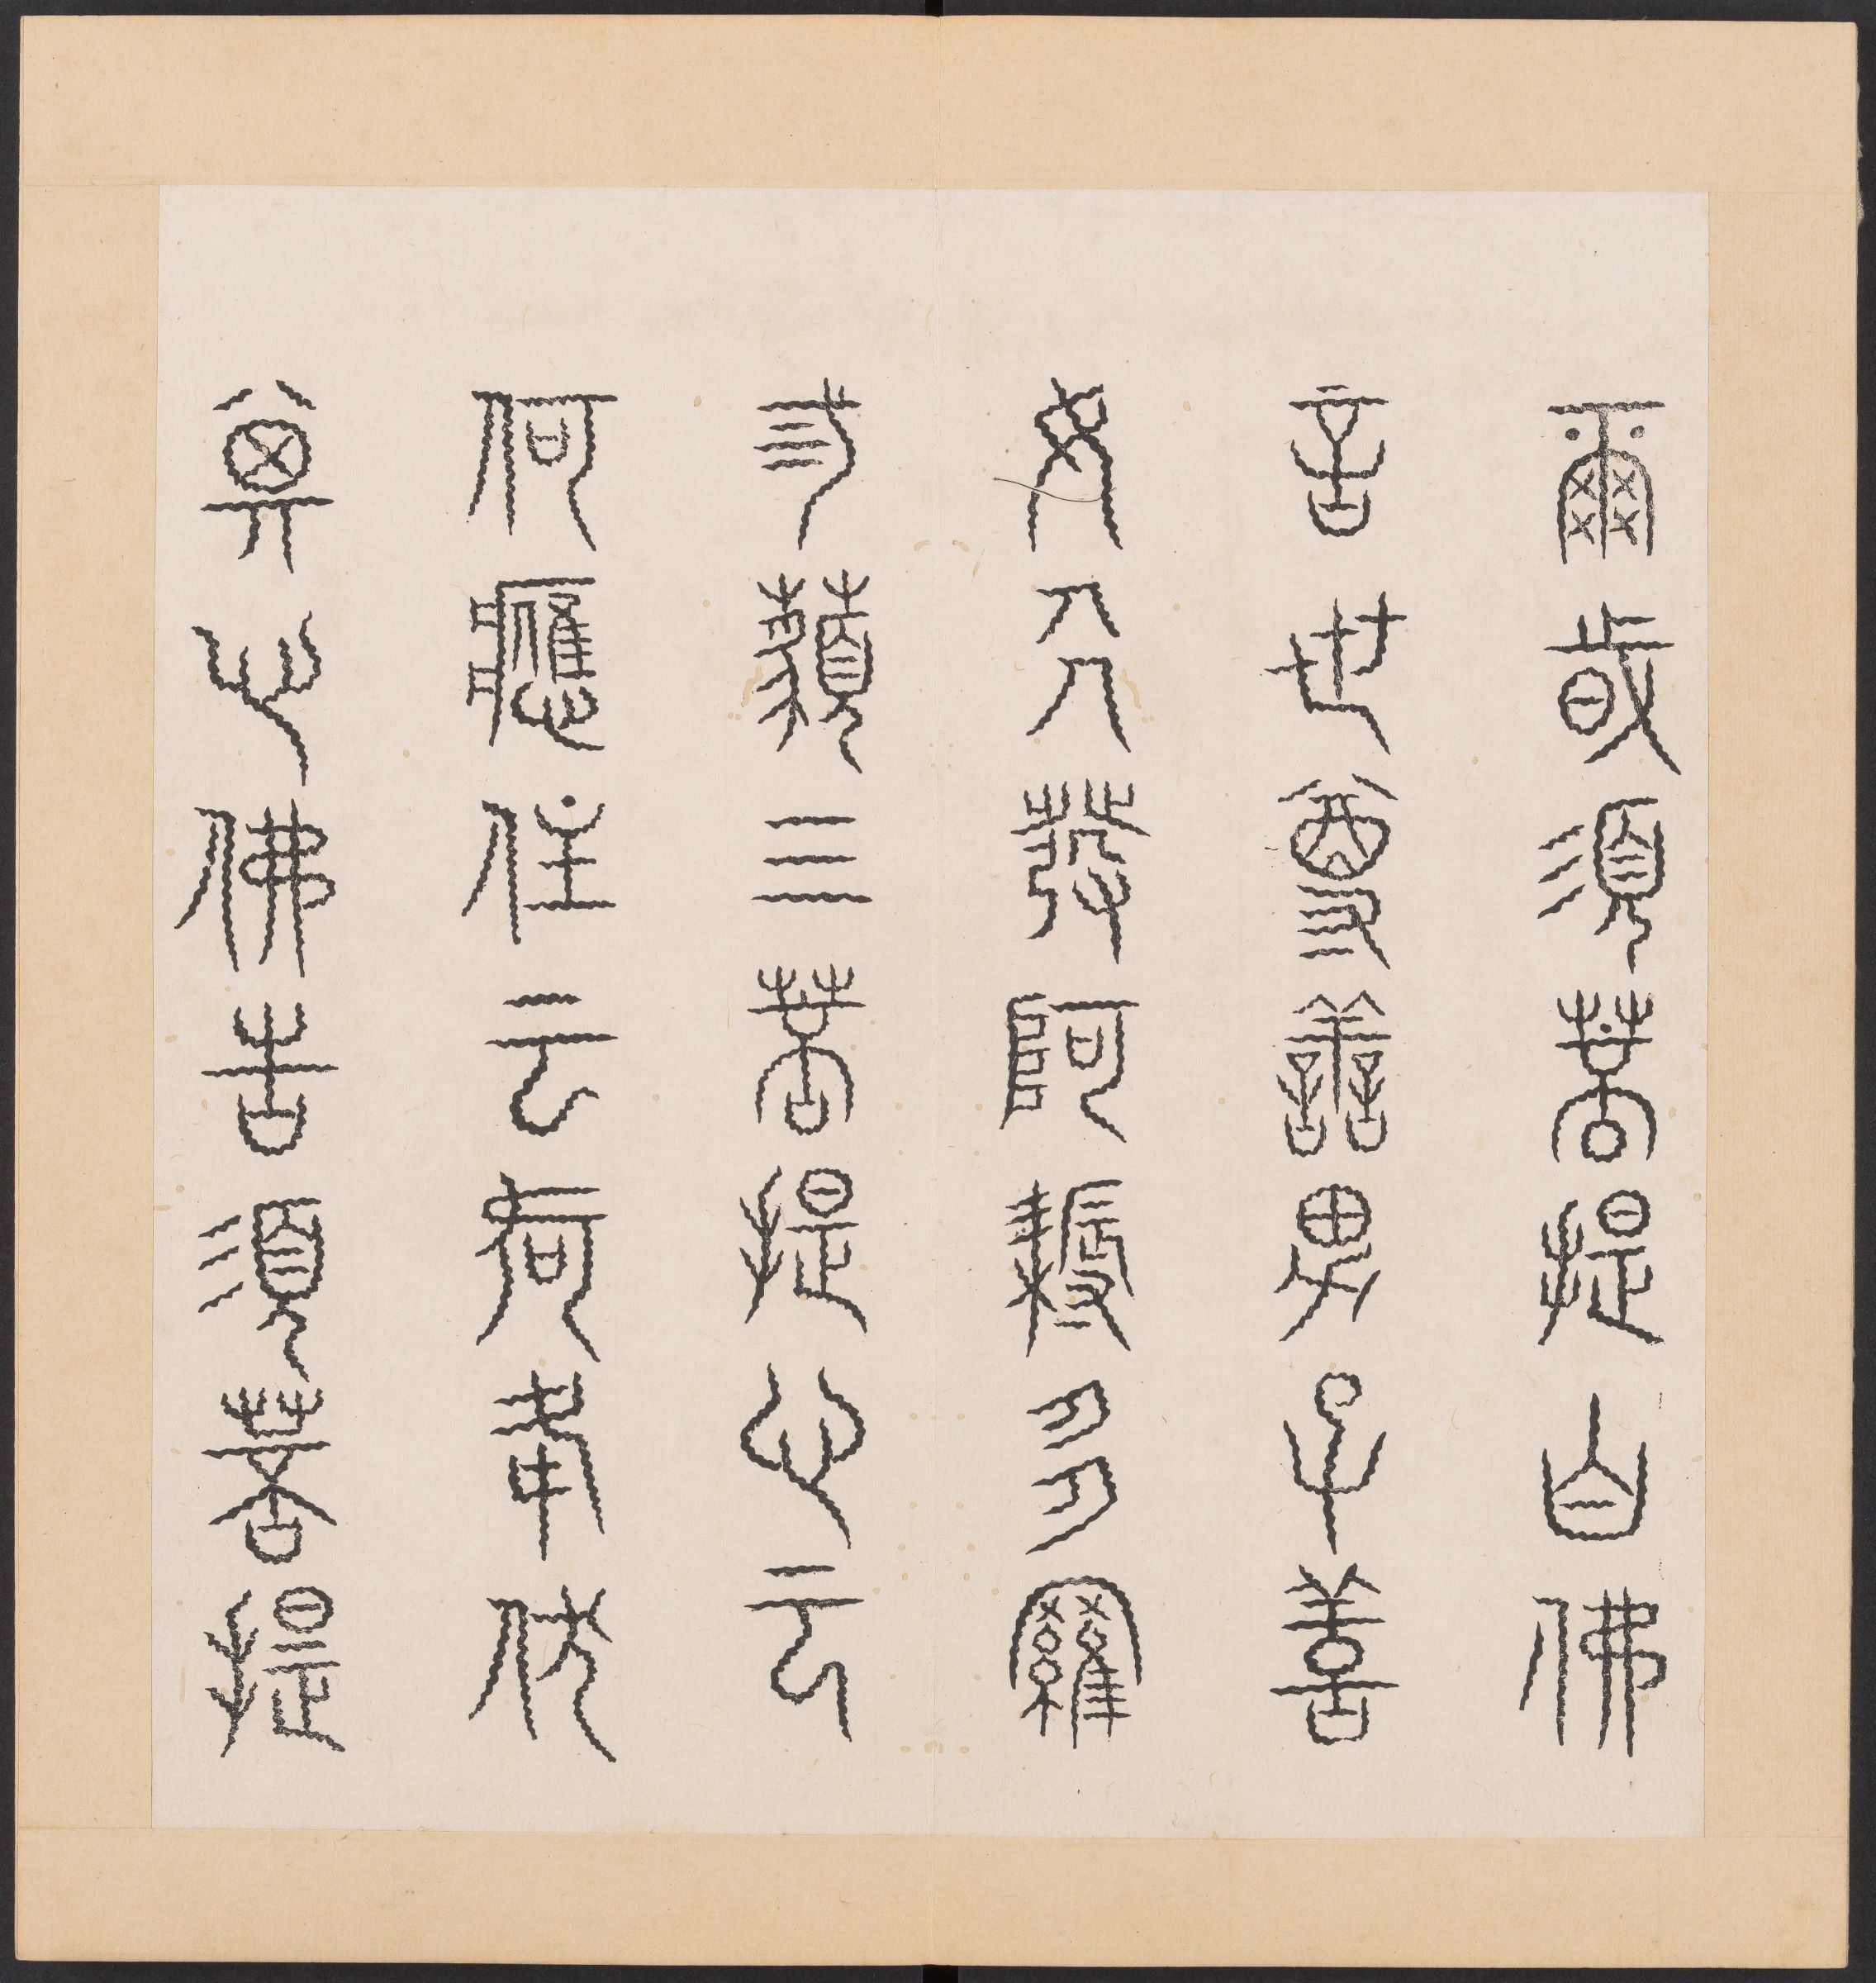 爾時須菩提白佛
言世尊善男子善
女人發阿耨多羅
三藐三菩提心云
何應住云何降伏
其心佛告須菩提